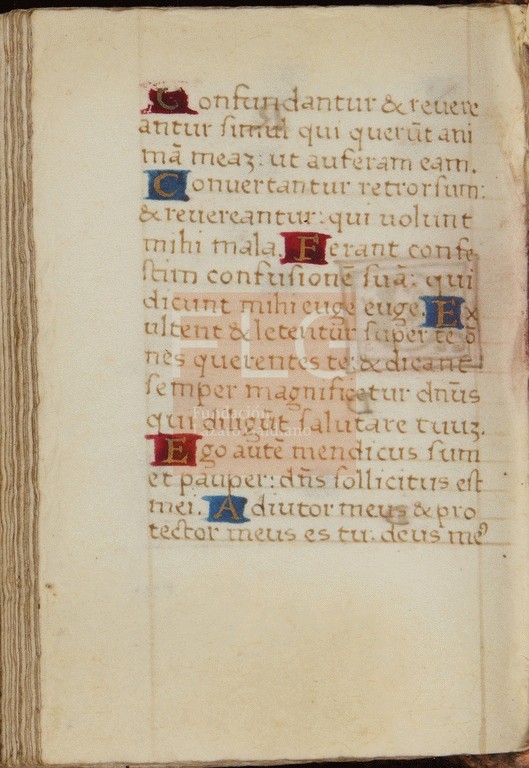 Confundantur & reuere
antur simul qui querūt ani
mā meaʒ: ut auferam eam.
Conuertantur retrorsum:
& reuereantur: qui uolunt
mihi mala. Ferant confe
stim confusionē suā: qui
dicunt mihi euge euge. Ex
ultent & letentur super te ō
nes querentes te: & dicant
semper magnificetur dn̄us
qui diligūt salutare tuuʒ.
Ego autē mendicus sum
et pauper: dn̄s sollicitus est
mei. Adiutor meus & pro
tector meus es tu: deus meꝰ
FLG
Fundación
Lázaro Galdiano